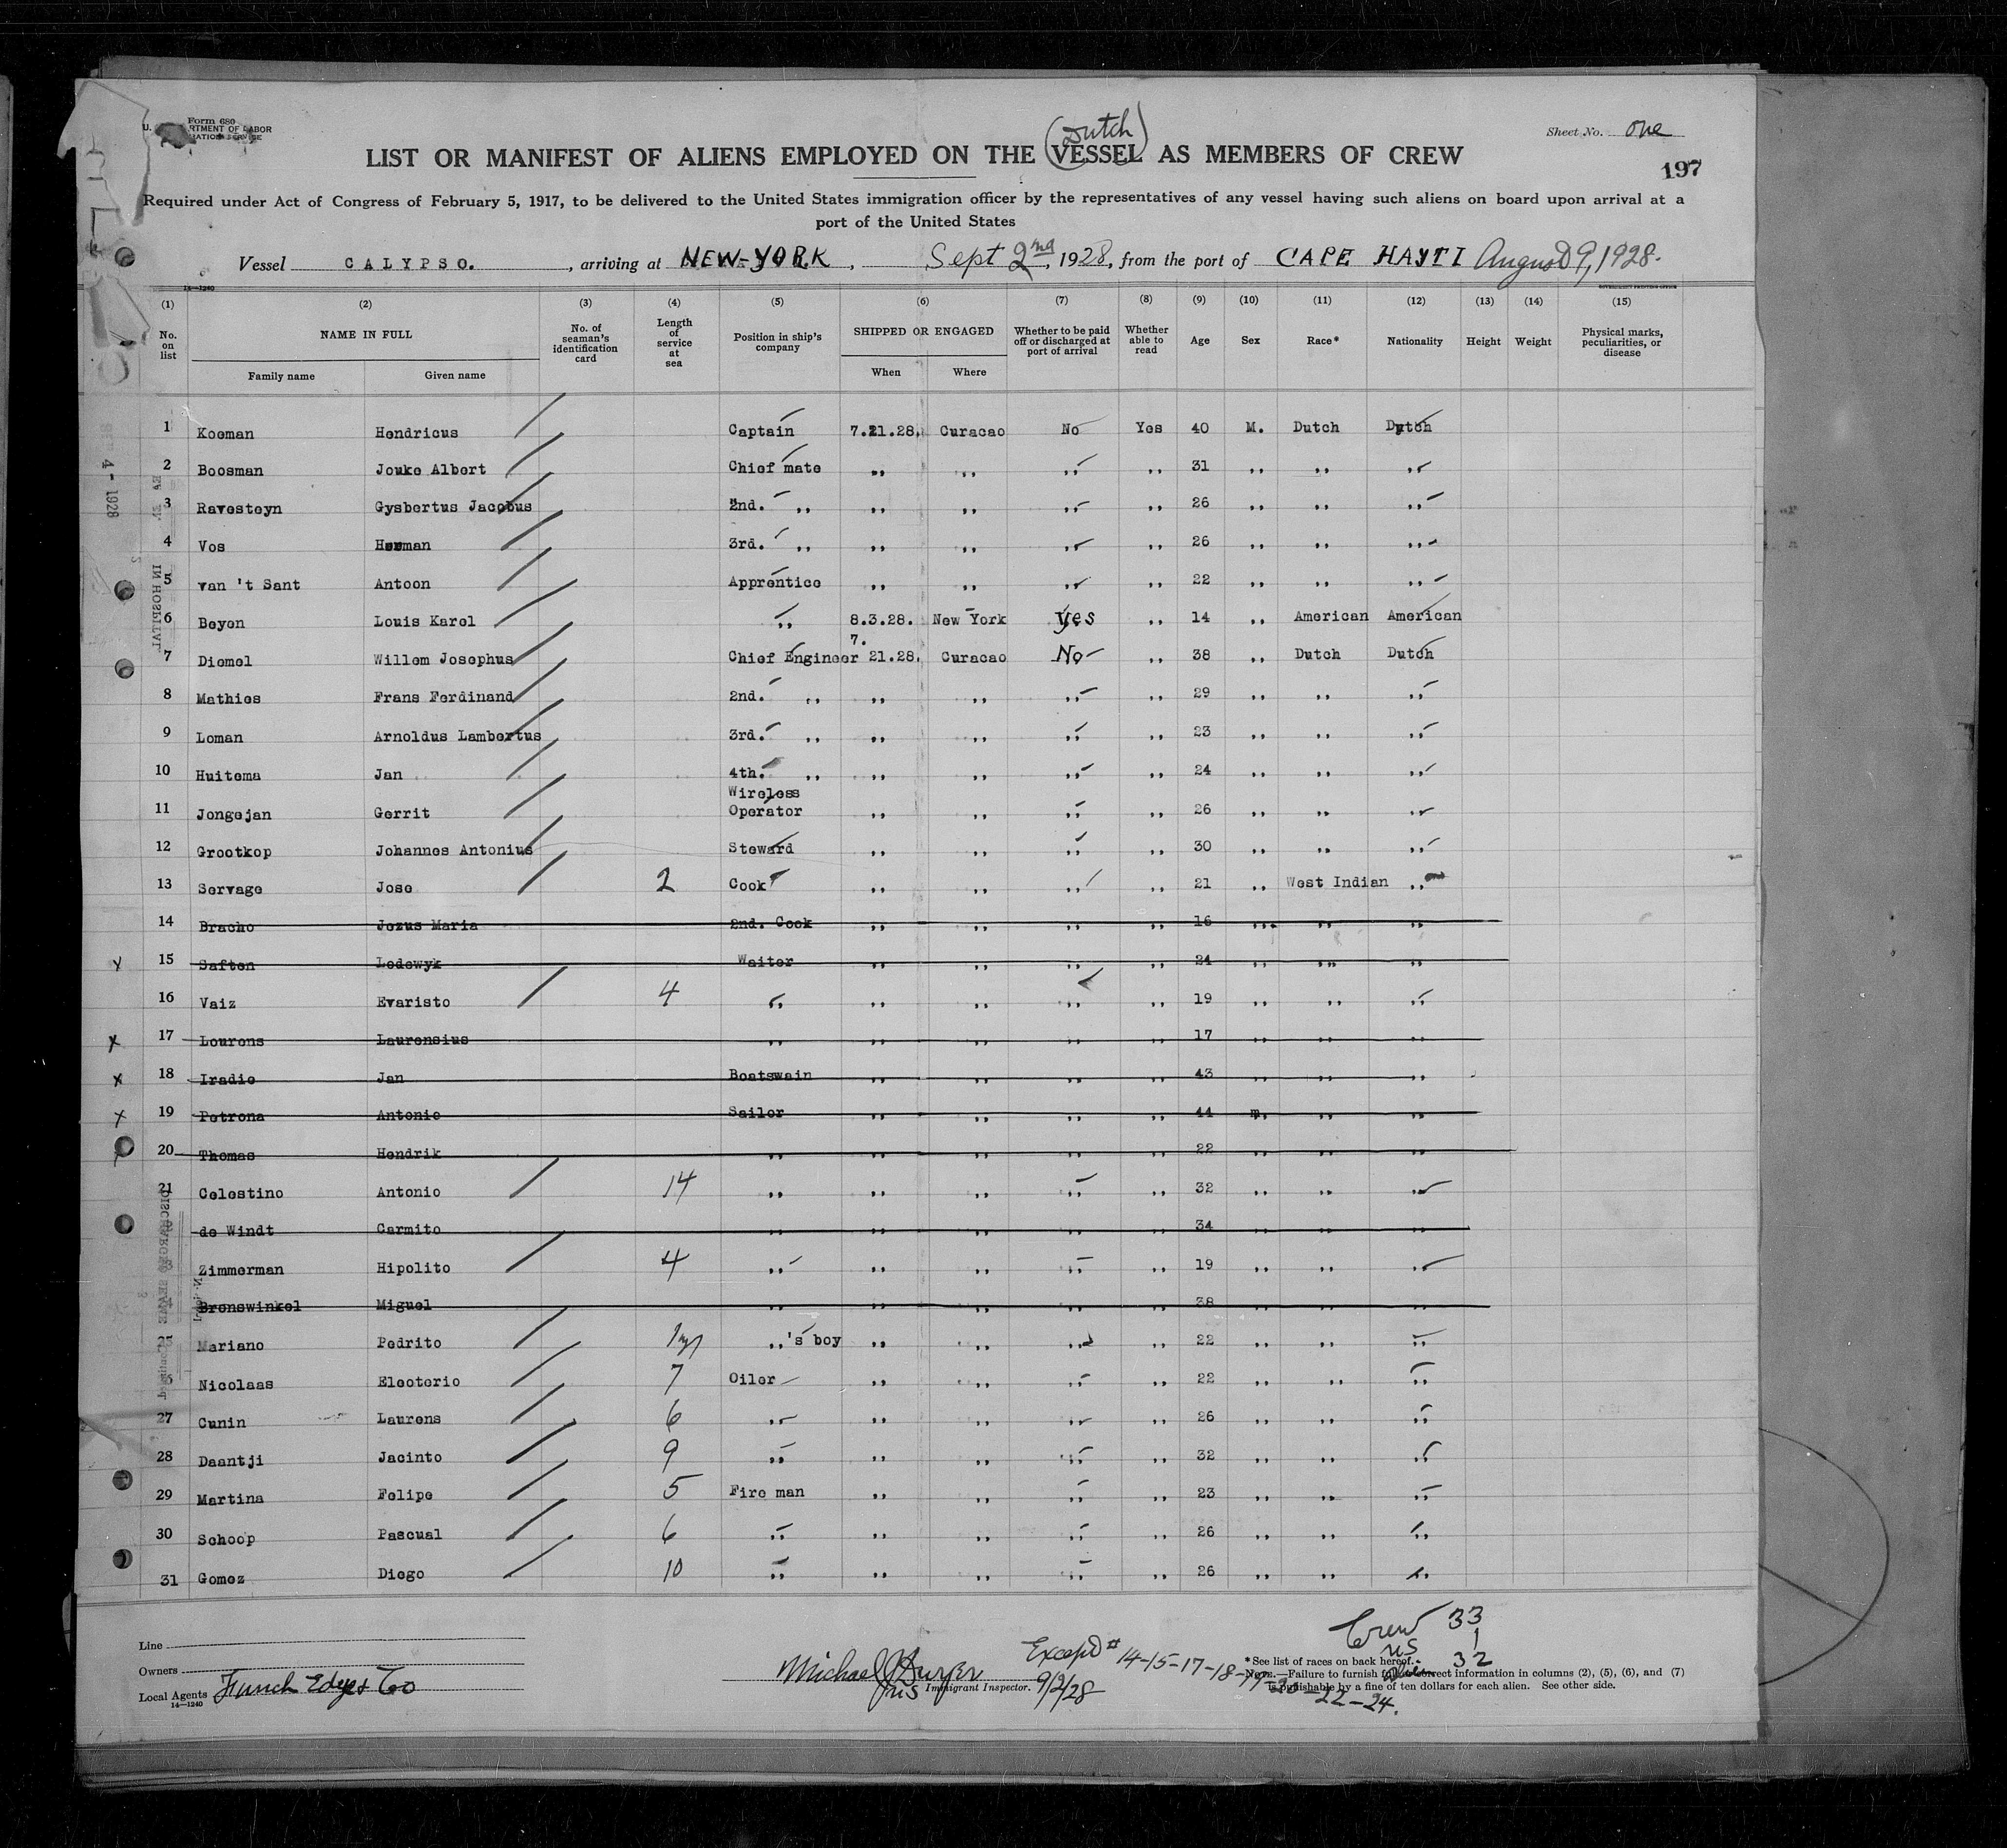 Form 680
U. RTMENT OF LABOR
(Dutch)
Sheet No. one
LIST OR MANIFEST OF ALIENS EMPLOYED ON THE VESSEL AS MEMBERS OF CREW
197
Required under Act of Congress of February 5, 1917, to be delivered to the United States immigration officer by the representatives of any vessel having such aliens on board upon arrival at a
port of the United States
Vessel CALYPSO. , arriving at NEW-YORK , Sept 2nd, 1928, from the port of CAPE HAYTI August 9, 1928.
14—1240 GOVERNMENT PRINTING OFFICE
(1) (2) (3) (4) (5) (6) (7) (8) (9) (10) (11) (12) (13) (14) (15)
No. on list NAME IN FULL Family name Given name No. of seaman's identification card Length of service at sea Position in ship's company SHIPPED OR ENGAGED When Where Whether to be paid off or discharged at port of arrival Whether able to read Age Sex Race* Nationality Height Weight Physical marks, peculiarities, or disease
1 Koeman Hendricus Captain 7.21.28. Curacao No Yes 40 M. Dutch Dutch
2 Boosman Jouke Albert Chief mate ,, ,, ,, ,, 31 ,, ,, ,,
3 Ravesteyn Gysbertus Jacobus 2nd. ,, ,, ,, ,, ,, 26 ,, ,, ,,
4 Vos Herman 3rd. ,, ,, ,, ,, ,, 26 ,, ,, ,,
5 van 't Sant Antoon Apprentice ,, ,, ,, ,, 22 ,, ,, ,,
6 Beyen Louis Karel ,, 8.3.28. New York yes ,, 14 ,, American American
7 Diemel Willem Josephus Chief Engineer 7. 21.28. Curacao No ,, 38 ,, Dutch Dutch
8 Mathies Frans Ferdinand 2nd. ,, ,, ,, ,, ,, 29 ,, ,, ,,
9 Loman Arnoldus Lambertus 3rd. ,, ,, ,, ,, ,, 23 ,, ,, ,,
10 Huitema Jan 4th. ,, ,, ,, ,, ,, 24 ,, ,, ,,
11 Jongejan Gerrit Wireless Operator ,, ,, ,, ,, 26 ,, ,, ,,
12 Grootkop Johannes Antonius Steward ,, ,, ,, ,, 30 ,, ,, ,,
13 Servage Jose 2 Cook ,, ,, ,, ,, 21 ,, West Indian ,,
14 Bracho Jezus Maria 2nd. Cook ,, ,, ,, ,, 16 ,, ,, ,,
x 15 Saften Lodewyk Waiter ,, ,, ,, ,, 24 ,, ,, ,,
16 Vaiz Evaristo 4 ,, ,, ,, ,, ,, 19 ,, ,, ,,
x 17 Lourens Laurensius ,, ,, ,, ,, ,, 17 ,, ,, ,,
x 18 Iradie Jan Boatswain ,, ,, ,, ,, 43 ,, ,, ,,
x 19 Petrona Antonie Sailor ,, ,, ,, ,, 44 m. ,, ,,
20 Thomas Hendrik ,, ,, ,, ,, ,, 22 ,, ,, ,,
21 Celestino Antonio 14 ,, ,, ,, ,, ,, 32 ,, ,, ,,
de Windt Carmito ,, ,, ,, ,, ,, 34 ,, ,, ,,
Zimmerman Hipolito 4 ,, ,, ,, ,, ,, 19 ,, ,, ,,
Bronswinkel Miguel ,, ,, ,, ,, ,, 38 ,, ,, ,,
25 Mariano Pedrito ,,'s boy ,, ,, ,, ,, 22 ,, ,, ,,
Nicolaas Electerio 7 Oiler ,, ,, ,, ,, 22 ,, ,, ,,
27 Cunin Laurens 6 ,, ,, ,, ,, ,, 26 ,, ,, ,,
28 Daantji Jacinto 9 ,, ,, ,, ,, ,, 32 ,, ,, ,,
29 Martina Felipe 5 Fire man ,, ,, ,, ,, 23 ,, ,, ,,
30 Schoop Pascual 6 ,, ,, ,, ,, ,, 26 ,, ,, ,,
31 Gomez Diego 10 ,, ,, ,, ,, ,, 26 ,, ,, ,,
4 - 1928
IN HOSPITAL
Crew 33
1
32
Line
Owners
Local Agents Funch Edye & Co
14—1240
Michael J
Immigrant Inspector.
Except # 14-15-17-18-19-20-22-24.
9/2/28
*See list of races on back hereof.
NOTE.—Failure to furnish full or correct information in columns (2), (5), (6), and (7)
is punishable by a fine of ten dollars for each alien. See other side.